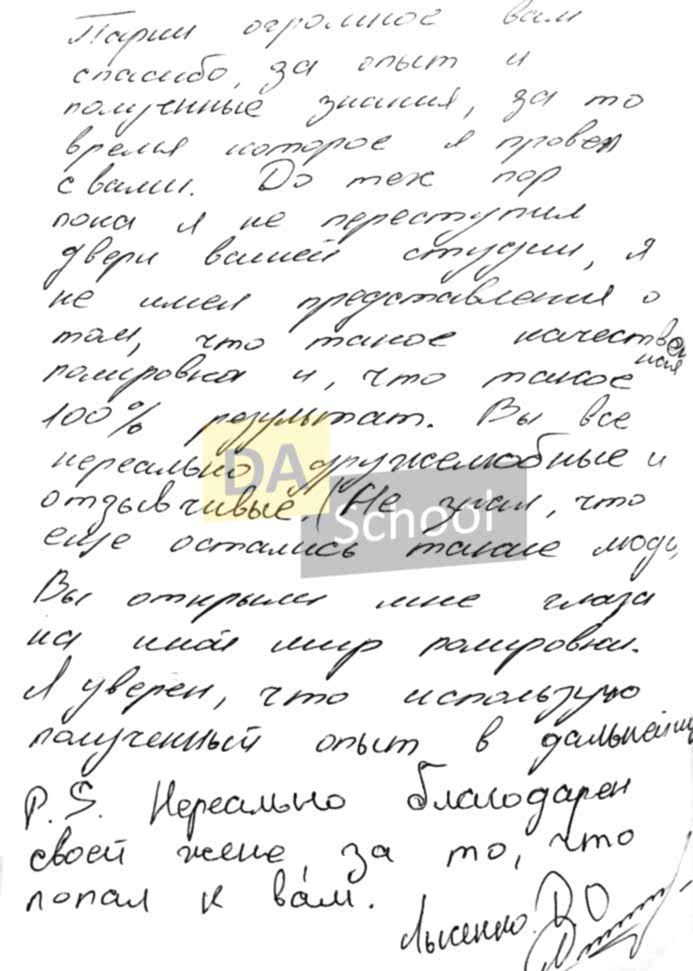 Парни огромное вам
спасибо, за опыт и
полученные знания, за то
время которое я провел
с вами. До тех пор
пока я не переступил
двери вашей студии, я
не имел представления о
том, что такое качествен
ная
полировка и, что такое
100% результат. Вы все
нереально дружелюбные и
отзывчивые. (Не знал, что
еще остались такие люди,
Вы открыли мне глаза
на иной мир полировки.
Я уверен, что использую
полученный опыт в дальнейшем
P.S. Нереально благодарен
своей жене, за то, что
попал к вам.
Лысенко. В О
DA
School